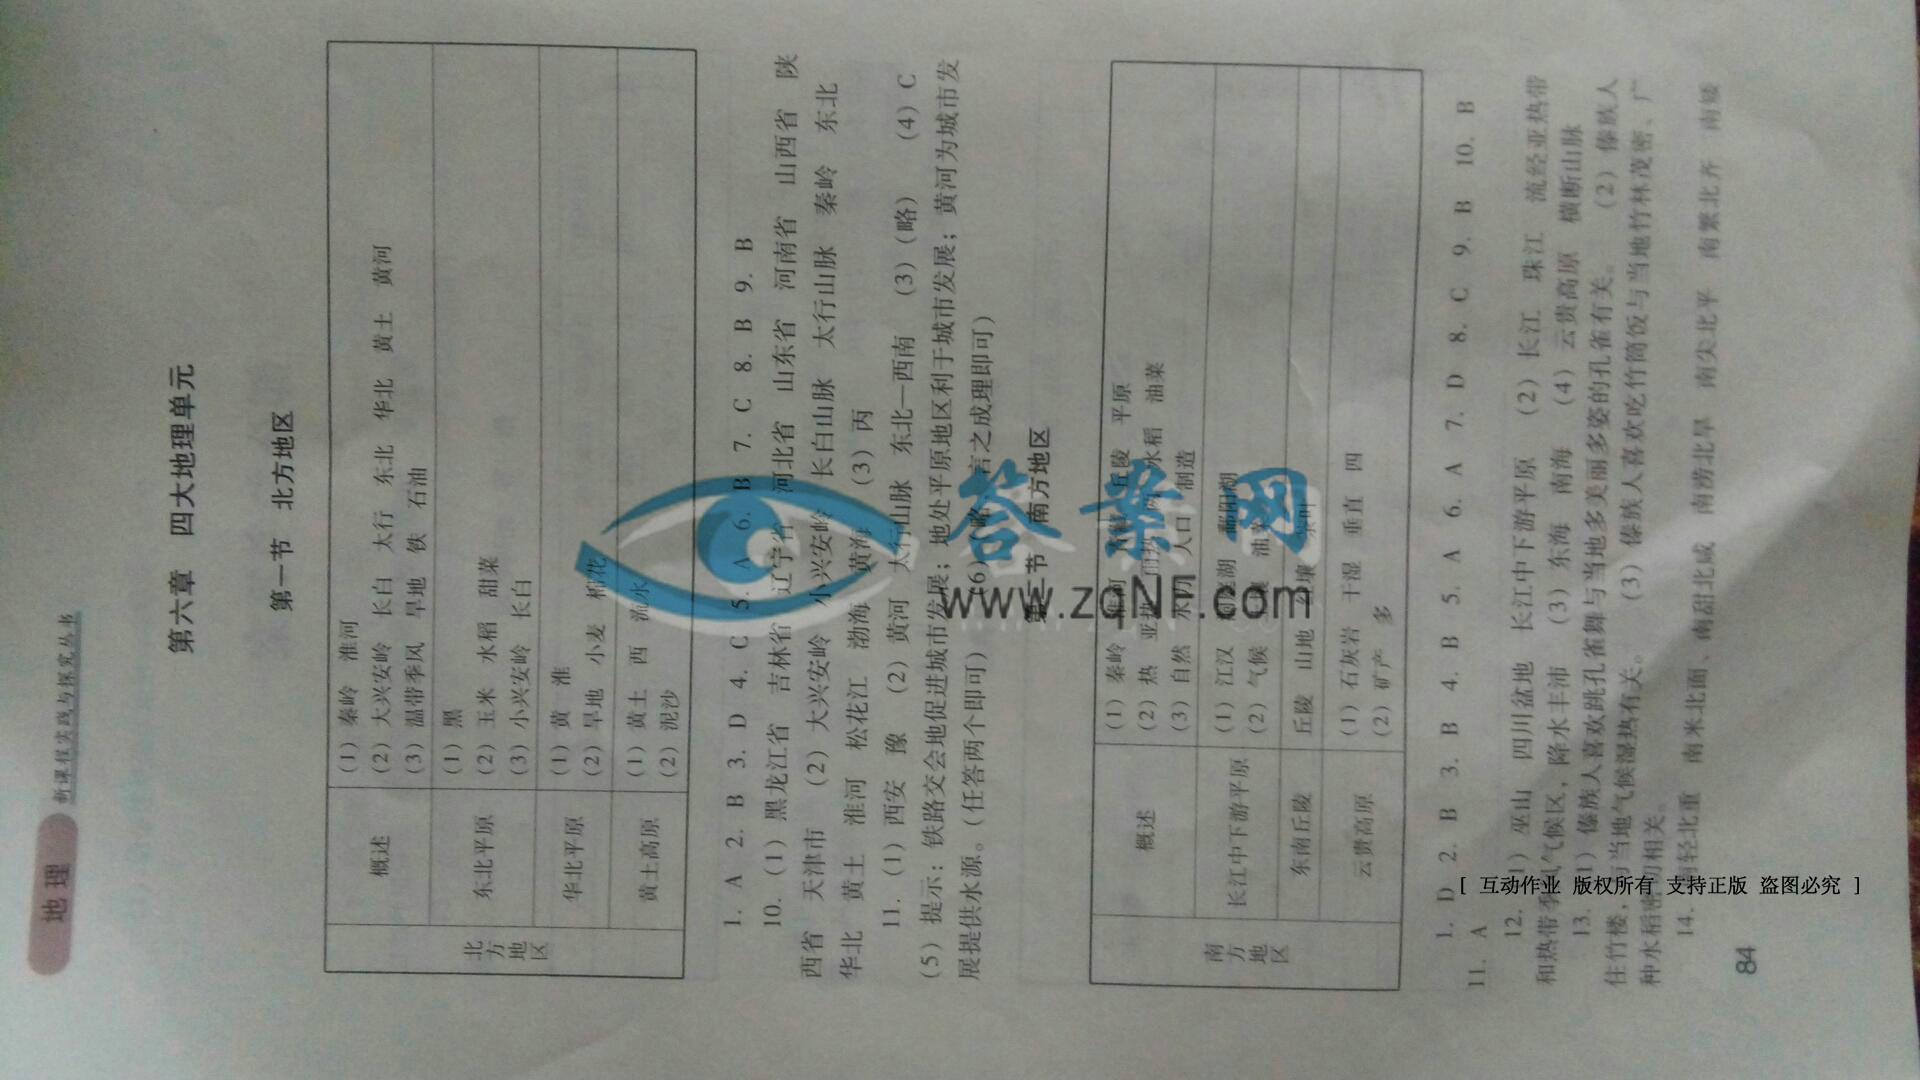 地理
新课程实践与探究丛书
第六章 四大地理单元
第一节 北方地区
北方地区
概述
(1) 秦岭 淮河
(2) 大兴安岭 长白 太行 东北 华北 黄土 黄河
(3) 温带季风 旱地 铁 石油
东北平原
(1) 黑
(2) 玉米 水稻 甜菜
(3) 小兴安岭 长白
华北平原
(1) 黄 淮
(2) 旱地 小麦 棉花
黄土高原
(1) 黄土 西 流水
(2) 泥沙
1. A 2. B 3. D 4. C 5. A 6. B 7. C 8. B 9. B
10. (1) 黑龙江省 吉林省 辽宁省 河北省 山东省 河南省 山西省 陕
西省 天津市 (2) 大兴安岭 小兴安岭 长白山脉 太行山脉 秦岭 东北
华北 黄土 淮河 松花江 渤海 黄海 (3) 丙
11. (1) 西安 豫 (2) 黄河 太行山脉 东北—西南 (3)(略) (4) C
(5) 提示：铁路交会地促进城市发展；地处平原地区利于城市发展；黄河为城市发
展提供水源。(任答两个即可) (6)(略，言之成理即可)
第二节 南方地区
南方地区
概述
(1) 秦岭 淮河 丘陵 平原
(2) 热 亚热 水稻 油菜
(3) 自然 水力 人口 制造
长江中下游平原
(1) 江汉 洞庭湖 鄱阳湖
(2) 气候 土壤 油菜
东南丘陵
丘陵 山地 红壤 茶叶
云贵高原
(1) 石灰岩 干湿 垂直 四
(2) 矿产 多
1. D 2. B 3. B 4. B 5. A 6. A 7. D 8. C 9. B 10. B
11. A
12. (1) 巫山 四川盆地 长江中下游平原 (2) 长江 珠江 流经亚热带
和热带季风气候区，降水丰沛 (3) 东海 南海 (4) 云贵高原 横断山脉
13. (1) 傣族人喜欢跳孔雀舞与当地多美丽多姿的孔雀有关。 (2) 傣族人
住竹楼，与当地气候湿热有关。 (3) 傣族人喜欢吃竹筒饭与当地竹林茂密、广
种水稻密切相关。
14. 南轻北重 南米北面、南甜北咸 南涝北旱 南尖北平 南繁北齐 南矮
84
答案网
www.zqnf.com
[ 互动作业 版权所有 支持正版 盗图必究 ]